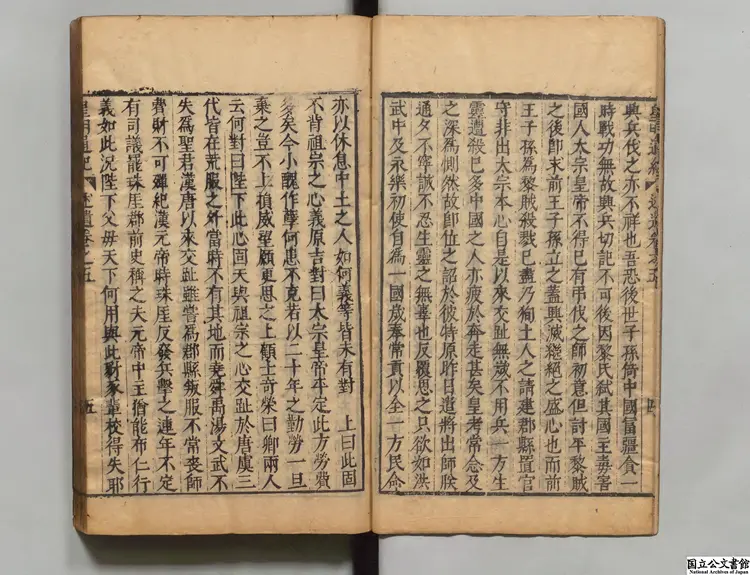 興兵伐之亦不祥也吾恐後世子孫倚中國富彊貪一
時戰功無故興兵切記不可後因黎氏弑其國主毒害
國人太宗皇帝不得已有弔伐之師初意但討平黎賊
之後即求前王子孫立之蓋興滅繼絕之盛心也而前
王子孫為黎賊殺戮已盡乃徇土人之請建郡縣置官
守非出太宗本心自是以來交趾無歲不用兵一方生
靈遭殺已多中國之人亦疲於奔走甚矣皇考常念及
之深為惻然故即位之詔於彼特原昨日遣將出師朕
通夕不寧誠不忍生靈之無辜也反覆思之只欲如洪
武中及永樂初使自為一國歲奉常貢以全一方民命
亦以休息中土之人如何義等皆未有對 上曰此固
不肯祖宗之心義原吉對曰太宗皇帝平定此方勞費
多矣今小醜作孽何患不克若以二十年之勤勞一旦
棄之豈不上損威望願更思之上顧士奇榮曰卿兩人
云何對曰陛下此心固天與祖宗之心交趾於唐虞三
代皆在荒服之外當時不有其地而堯舜禹湯文武不
失為聖君漢唐以來交趾雖嘗為郡縣叛服不常喪師
費財不可殫紀漢元帝時珠厓反發兵擊之連年不定
有司議罷珠厓郡前史稱之夫元帝中主猶能布仁行
義如此況陛下父母天下何用與此豺豕輩校得失耶
皇明通紀 述遺卷之五 五